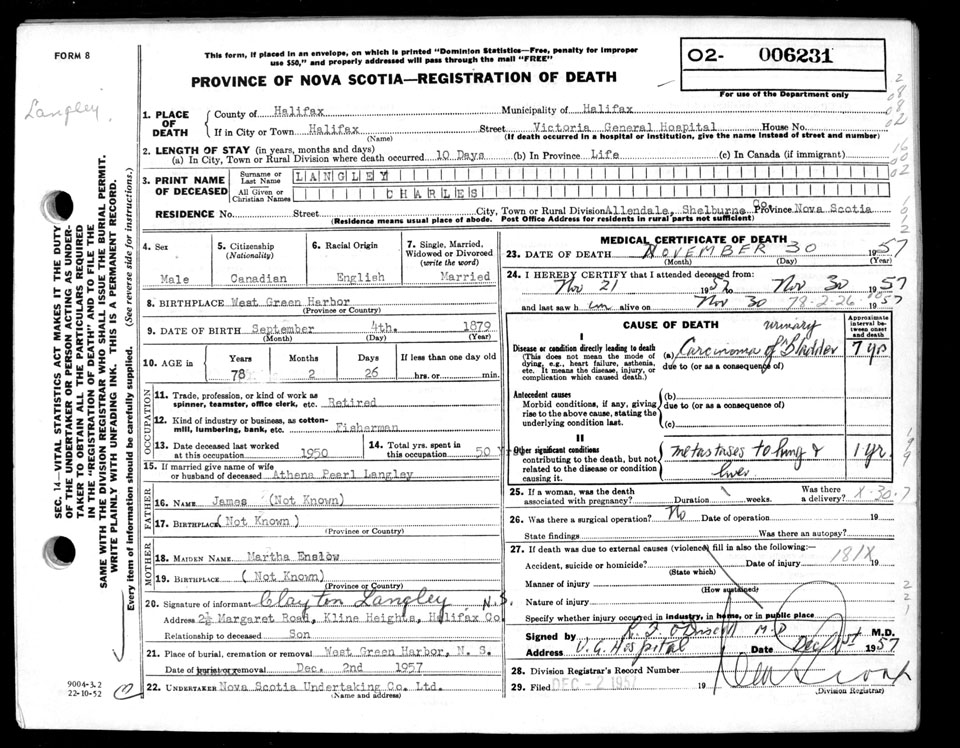 FORM 8
This form, if placed in an envelope, on which is printed "Dominion Statistics—Free, penalty for improper
use $50," and properly addressed will pass through the mail "FREE"
PROVINCE OF NOVA SCOTIA—REGISTRATION OF DEATH
02- 006231
For use of the Department only
Langley
SEC. 14—VITAL STATISTICS ACT MAKES IT THE DUTY
OF THE UNDERTAKER OR PERSON ACTING AS UNDER-
TAKER TO OBTAIN ALL THE PARTICULARS REQUIRED
IN THE "REGISTRATION OF DEATH" AND TO FILE THE
SAME WITH THE DIVISION REGISTRAR WHO SHALL ISSUE THE BURIAL PERMIT.
WRITE PLAINLY WITH UNFADING INK. THIS IS A PERMANENT RECORD.
Every item of information should be carefully supplied. (See reverse side for instructions.)
1. PLACE OF DEATH
County of Halifax Municipality of Halifax
If in City or Town Halifax Street Victoria General Hospital House No.
(Name) (If death occurred in a hospital or institution, give the name instead of street and number)
2. LENGTH OF STAY (in years, months and days)
(a) In City, Town or Rural Division where death occurred 10 Days (b) In Province Life (c) In Canada (if immigrant)
3. PRINT NAME OF DECEASED
Surname or Last Name LANGLEY
All Given or Christian Names CHARLES
RESIDENCE No. Street City, Town or Rural Division Allendale, Shelburne Co. Province Nova Scotia
(Residence means usual place of abode. Post Office Address for residents in rural parts not sufficient)
4. Sex 5. Citizenship (Nationality) 6. Racial Origin 7. Single, Married, Widowed or Divorced (write the word)
Male Canadian English Married
8. BIRTHPLACE West Green Harbor
(Province or Country)
9. DATE OF BIRTH September 4th. 1879
(Month) (Day) (Year)
10. AGE in Years Months Days If less than one day old
78 2 26 hrs. or min.
OCCUPATION
11. Trade, profession, or kind of work as
spinner, teamster, office clerk, etc. Retired
12. Kind of industry or business, as cotton-
mill, lumbering, bank, etc. Fisherman
13. Date deceased last worked at this occupation 1950
14. Total yrs. spent in this occupation 50 Yrs
15. If married give name of wife
or husband of deceased Athena Pearl Langley
FATHER
16. NAME James (Not Known)
17. BIRTHPLACE (Not Known)
(Province or Country)
MOTHER
18. MAIDEN NAME Martha Enslow
19. BIRTHPLACE (Not Known)
(Province or Country)
20. Signature of informant Clayton Langley N.S.
Address 2½ Margaret Road, Kline Heights, Halifax Co.
Relationship to deceased Son
21. Place of burial, cremation or removal West Green Harbor, N. S.
Date of burial or removal Dec. 2nd 1957
22. UNDERTAKER Nova Scotia Undertaking Co. Ltd.
(Name and address)
9004-3.2
22-10-52
MEDICAL CERTIFICATE OF DEATH
23. DATE OF DEATH NOVEMBER 30 1957
(Month) (Day) (Year)
24. I HEREBY CERTIFY that I attended deceased from:
Nov 21 1957 to Nov 30 1957
and last saw him alive on Nov 30 78-2-26 1957
CAUSE OF DEATH
Approximate interval between onset and death
I
Disease or condition directly leading to death
(This does not mean the mode of
dying, e.g., heart failure, asthenia,
etc. It means the disease, injury, or
complication which caused death.)
(a) Carcinoma of urinary Bladder 7 yrs
due to (or as a consequence of)
Antecedent causes
Morbid conditions, if any, giving
rise to the above cause, stating the
underlying condition last.
(b)
due to (or as a consequence of)
(c)
II
Other significant conditions
contributing to the death, but not
related to the disease or condition
causing it.
metastases to lung & liver 1 yr.
25. If a woman, was the death associated with pregnancy? Duration weeks. Was there a delivery? X-30-7
26. Was there a surgical operation? No Date of operation 19
State findings Was there an autopsy?
27. If death was due to external causes (violence) fill in also the following:— 181X
Accident, suicide or homicide? Date of injury 19
(State which)
Manner of injury
(How sustained)
Nature of injury
Specify whether injury occurred in industry, in home, or in public place
Signed by M.D. M.D.
Address V.G. Hospital Date Dec 1st 1957
28. Division Registrar's Record Number
29. Filed DEC - 2 1957 19
(Division Registrar)